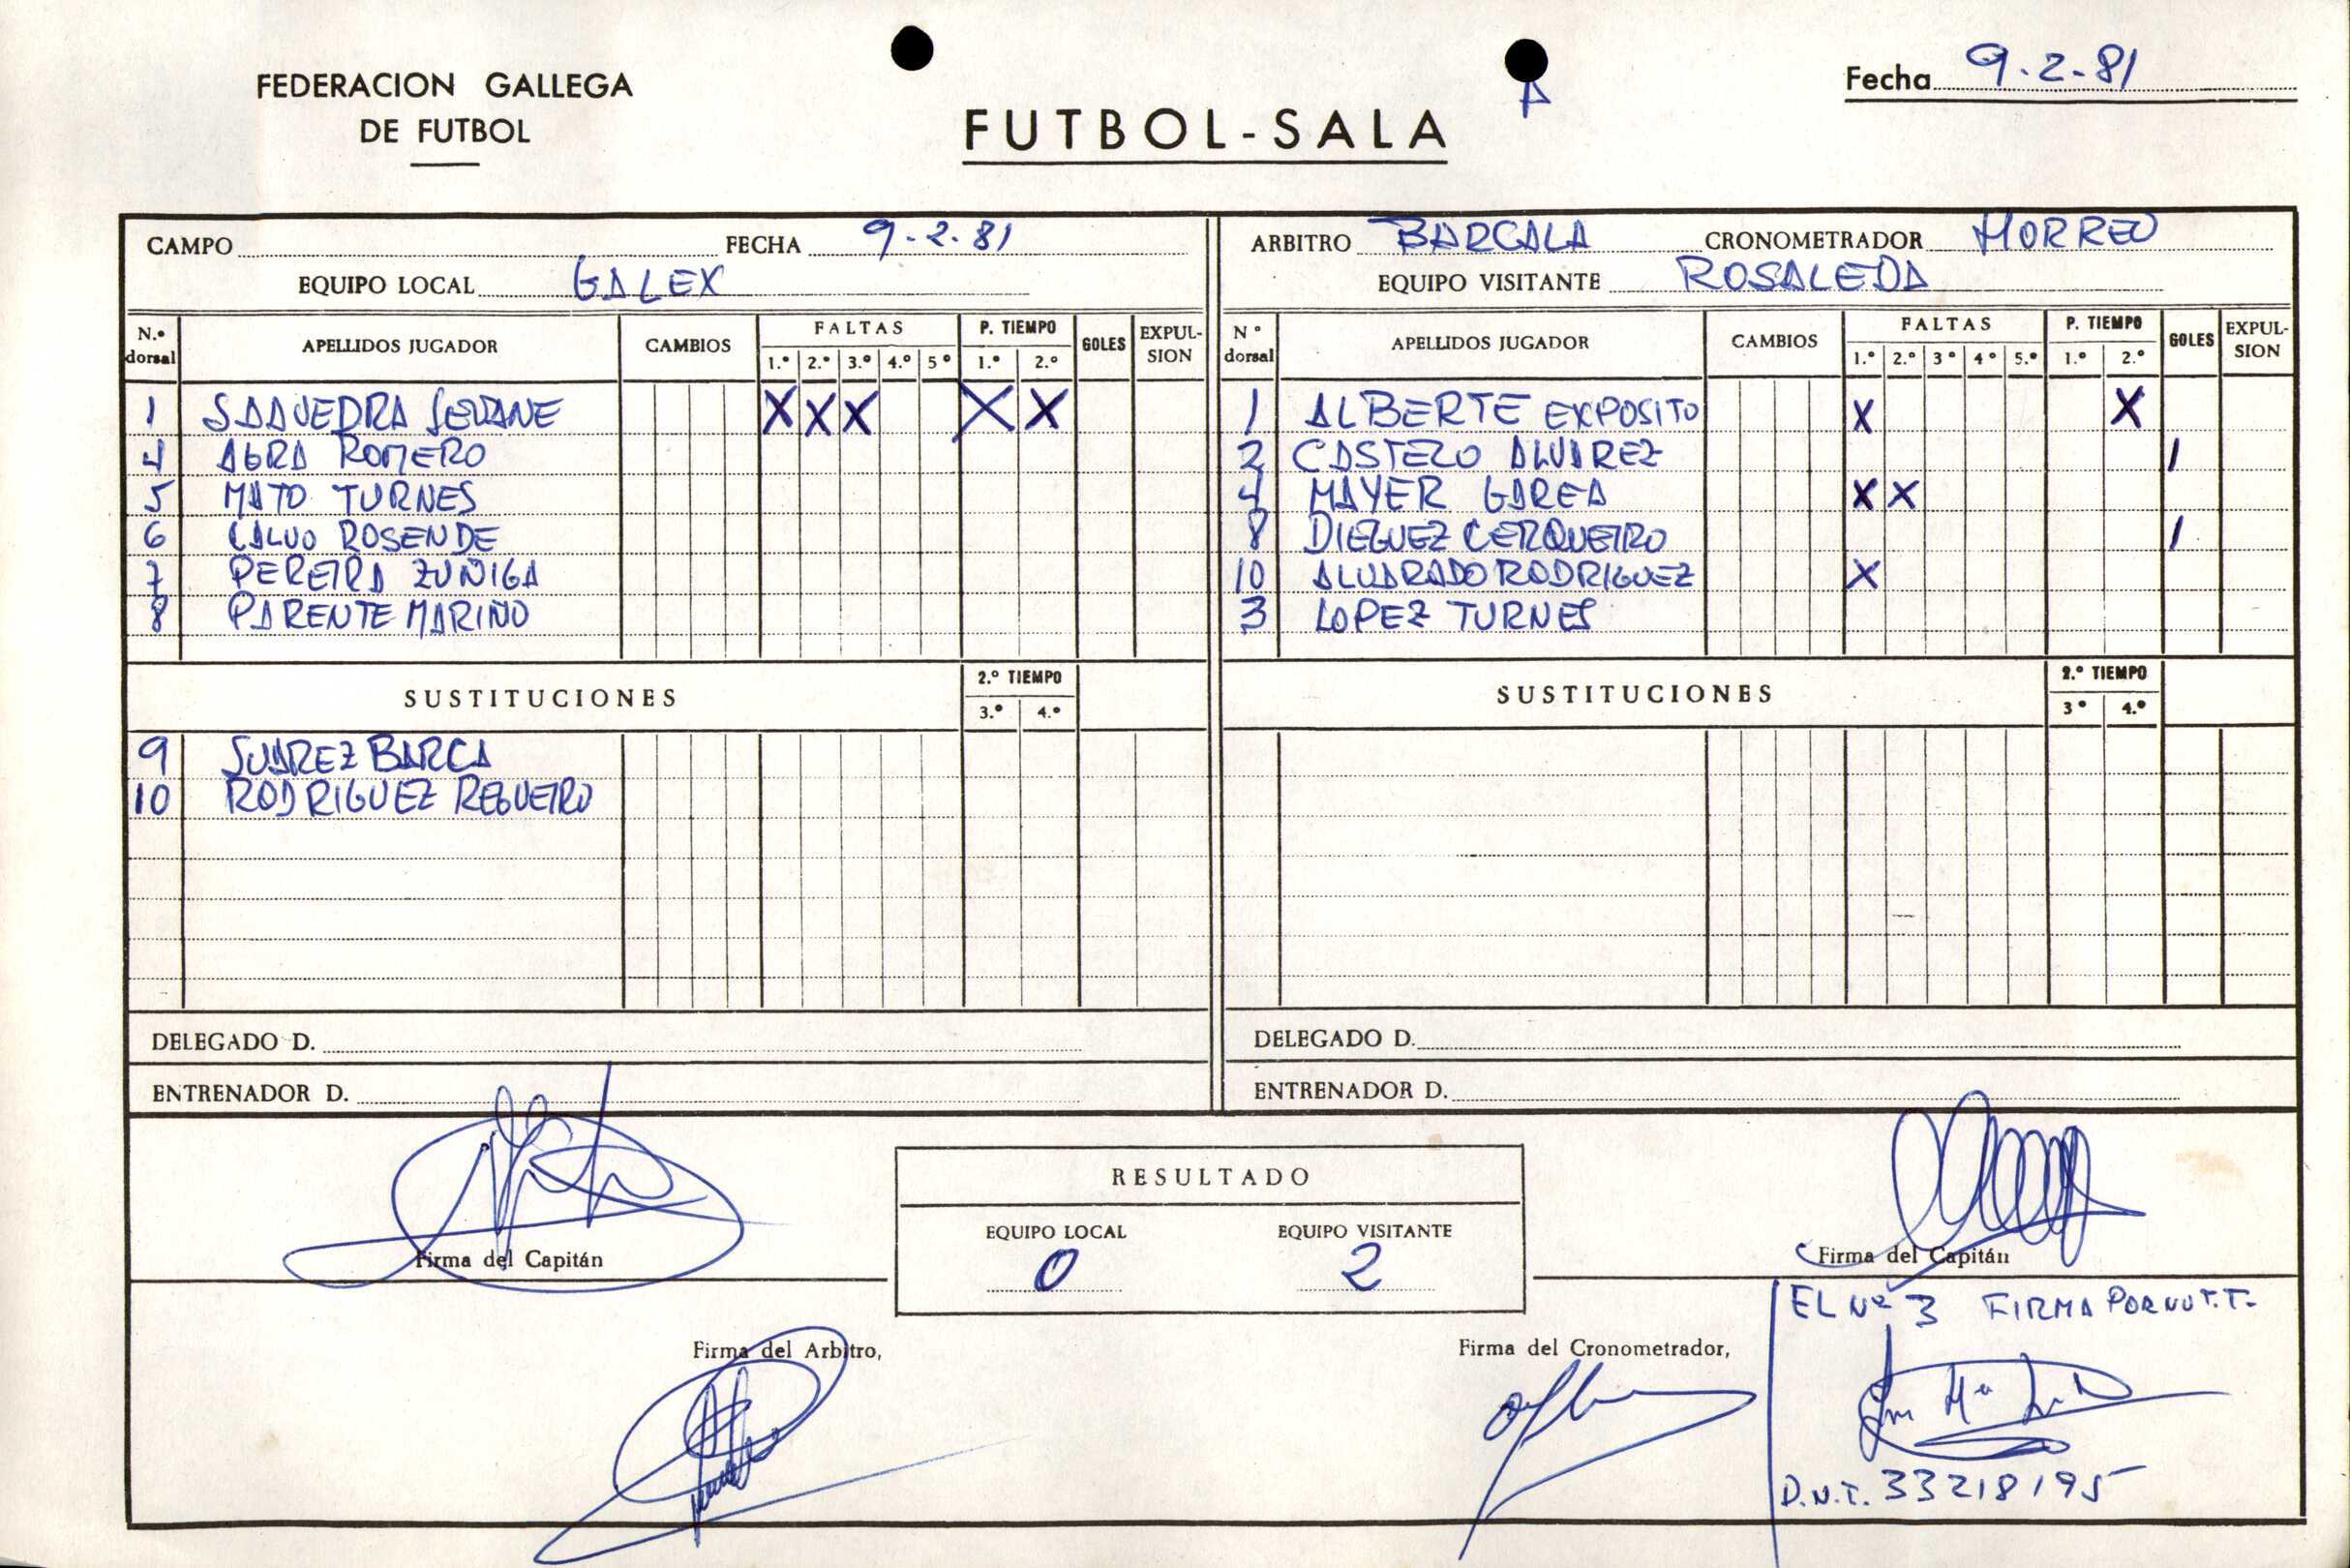 FEDERACION GALLEGA
DE FUTBOL
FUTBOL-SALA
Fecha 9-2-81
CAMPO FECHA 9-2-81
EQUIPO LOCAL GALEX
N.º dorsal APELLIDOS JUGADOR CAMBIOS FALTAS 1.º 2.º 3.º 4.º 5º P. TIEMPO 1.º 2.º GOLES EXPUL-SION
1 SAAVEDRA SEOANE X X X X X
4 AGRA ROMERO
5 MATO TURNES
6 CALVO ROSENDE
7 PEREIRA ZUÑIGA
8 PARENTE MARIÑO
SUSTITUCIONES 2.º TIEMPO 3.º 4.º
9 SUAREZ BARCA
10 RODRIGUEZ REGUEIRO
DELEGADO D.
ENTRENADOR D.
ARBITRO BARCALA CRONOMETRADOR HORREO
EQUIPO VISITANTE ROSALEDA
Nº dorsal APELLIDOS JUGADOR CAMBIOS FALTAS 1.º 2.º 3º 4º 5.º P. TIEMPO 1.º 2.º GOLES EXPUL-SION
1 ALBERTE EXPOSITO X X
2 CASTELO ALVAREZ 1
4 MAYER GAREA X X
8 DIEGUEZ CERQUEIRO 1
10 ALVARADO RODRIGUEZ X
3 LOPEZ TURNES
SUSTITUCIONES 2.º TIEMPO 3º 4.º
DELEGADO D.
ENTRENADOR D.
Firma del Capitán
RESULTADO
EQUIPO LOCAL EQUIPO VISITANTE
0 2
Firma del Capitán
Firma del Arbitro,
Firma del Cronometrador,
EL Nº 3 FIRMA POR NO T.T.
D.N.I. 33218195